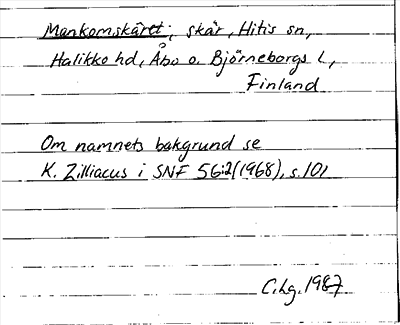 Mankomskäret; skär, Hitis sn,
Halikko hd, Åbo o. Björneborgs l,
Finland
Om namnets bakgrund se
K. Zilliacus i SNF 56:2(1968), s. 101
C.Lg. 1987